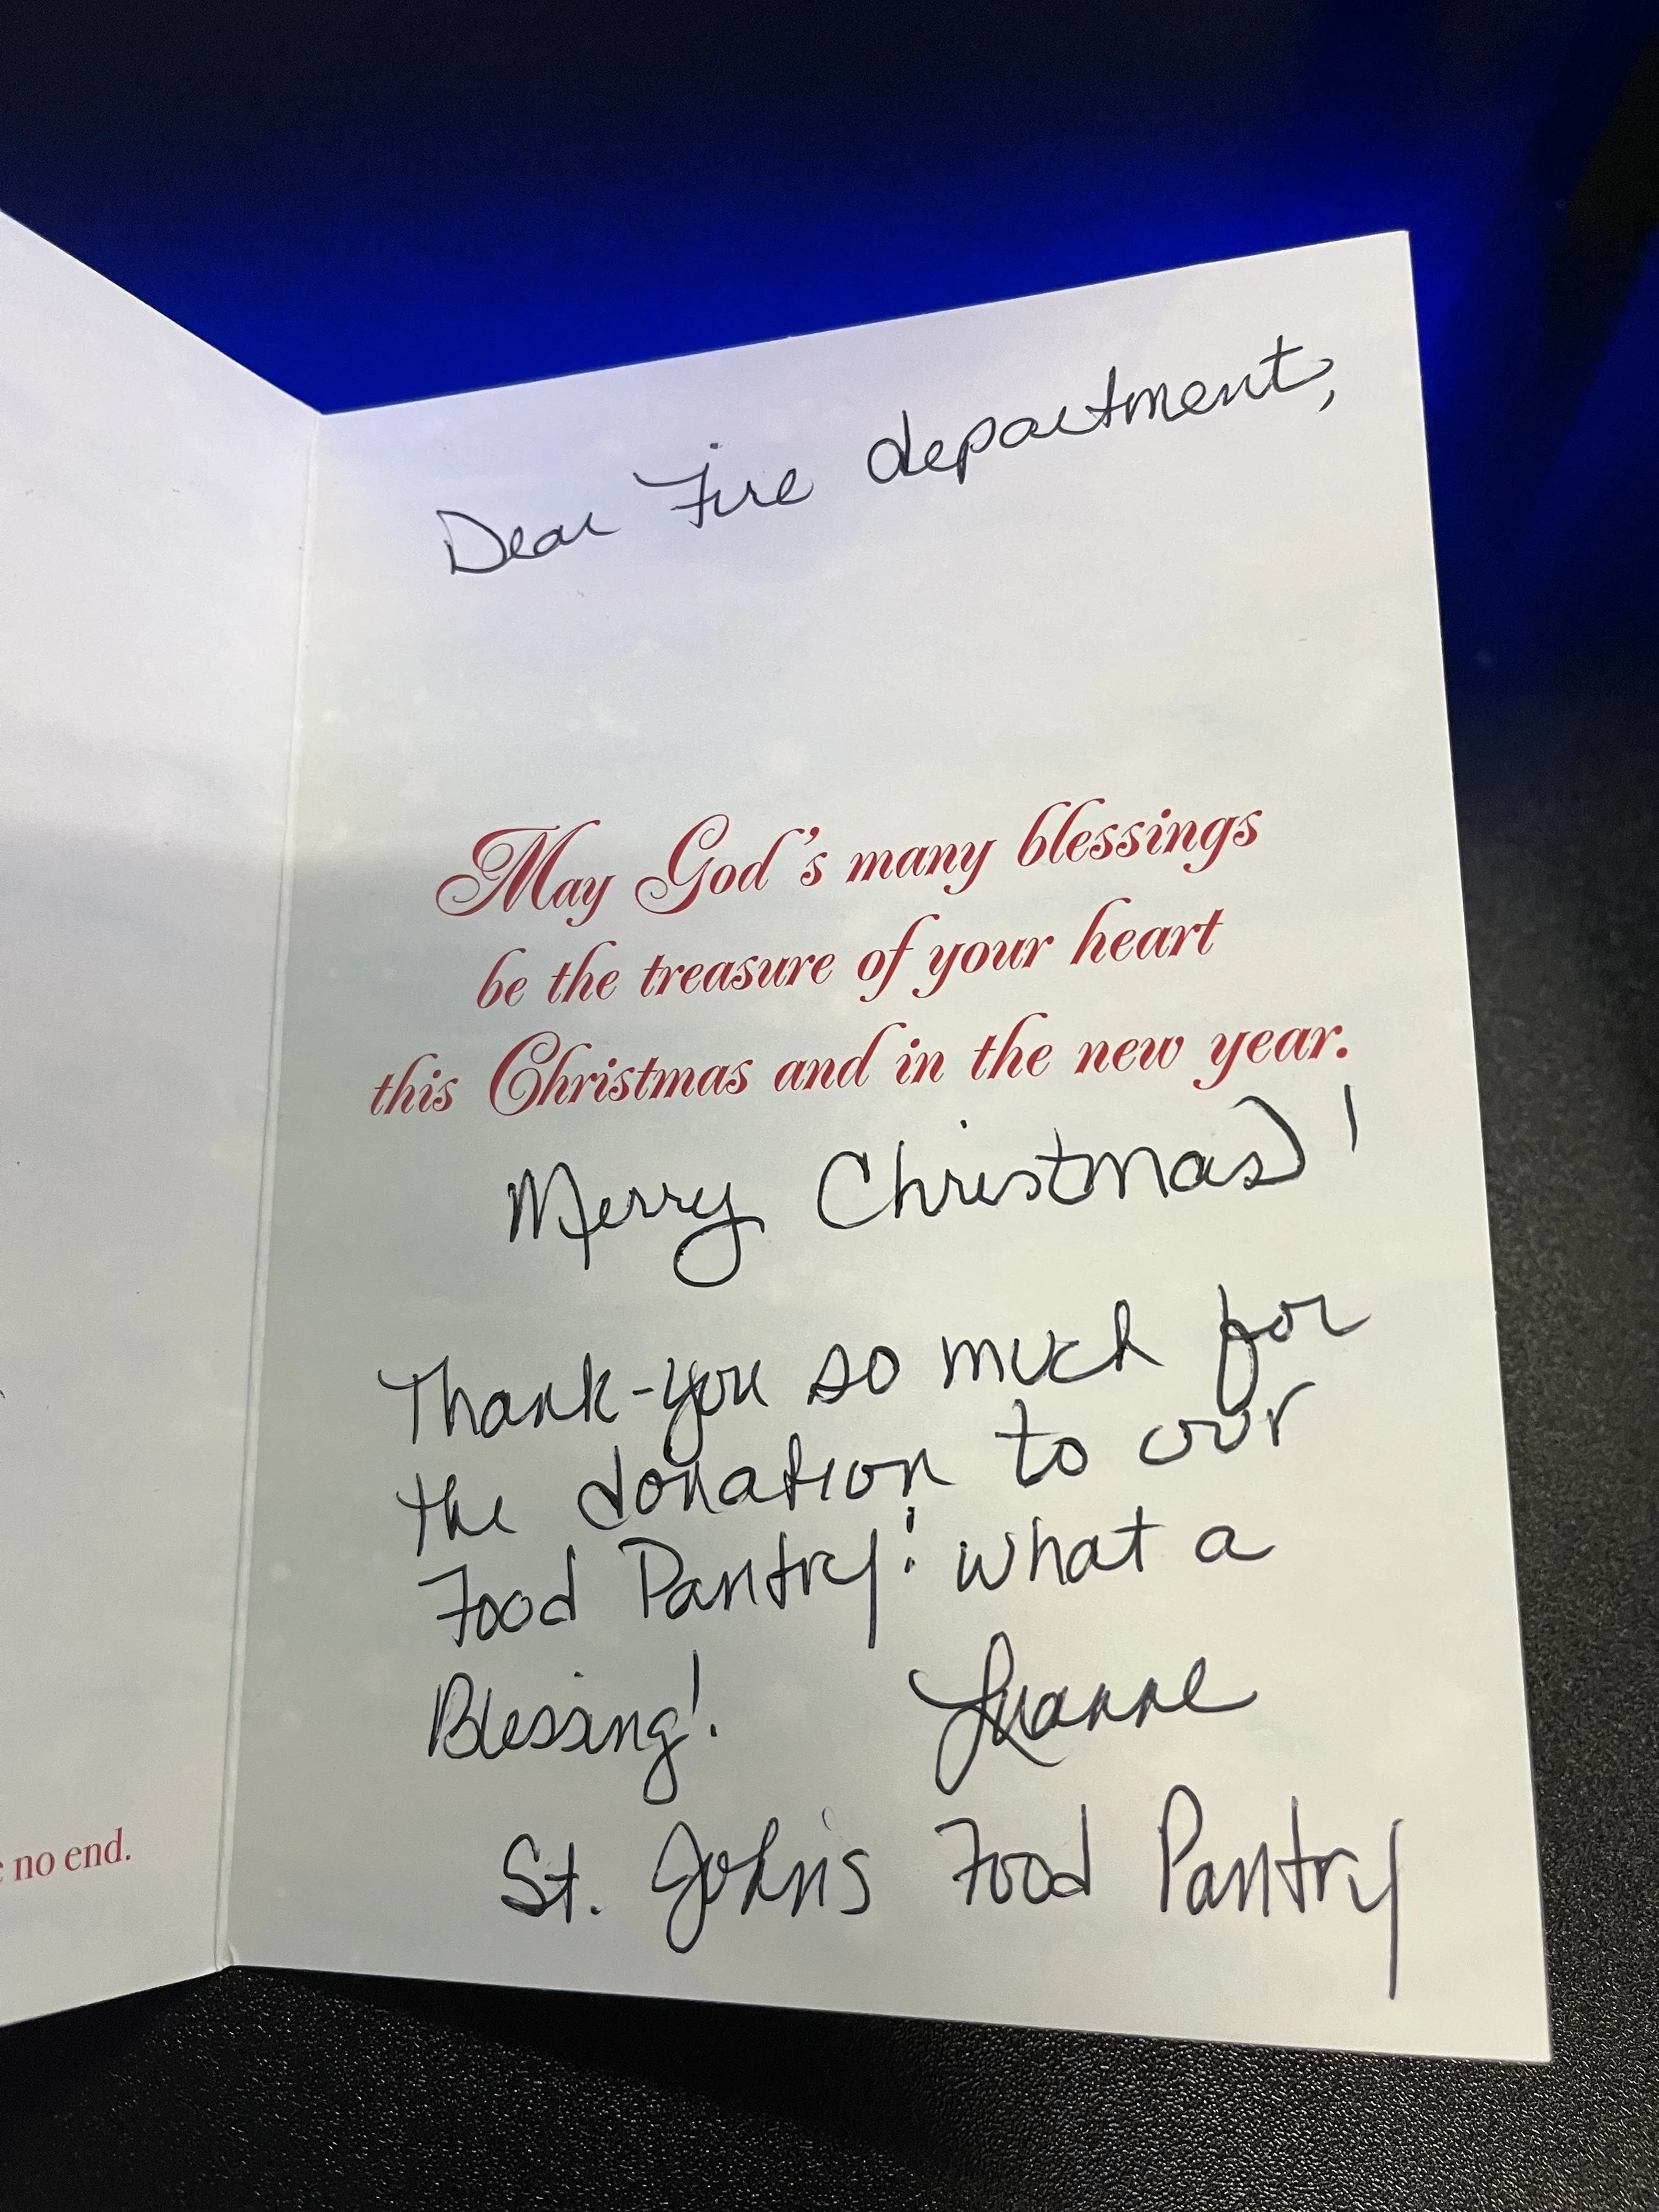 Dear Fire department,
May God's many blessings
be the treasure of your heart
this Christmas and in the new year.
Merry Christmas!
Thank-you so much for
the donation to our
Food Pantry! what a
Blessing! Luanne
St. John's Food Pantry
no end.